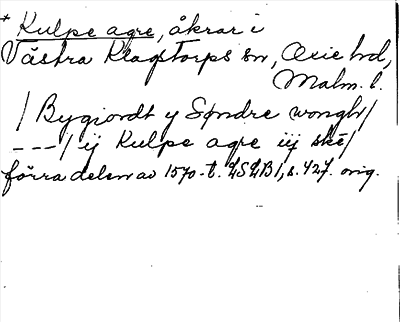 * Kulpe agre, åkrar i
Västra Klagstorps sn, Oxie hd,
Malm. l.
/ Bygiordt y Søndre wongh /
---/ ij Kulpe agre iij ske /
förra delen av 1570-t. LSLB1, s. 427. orig.